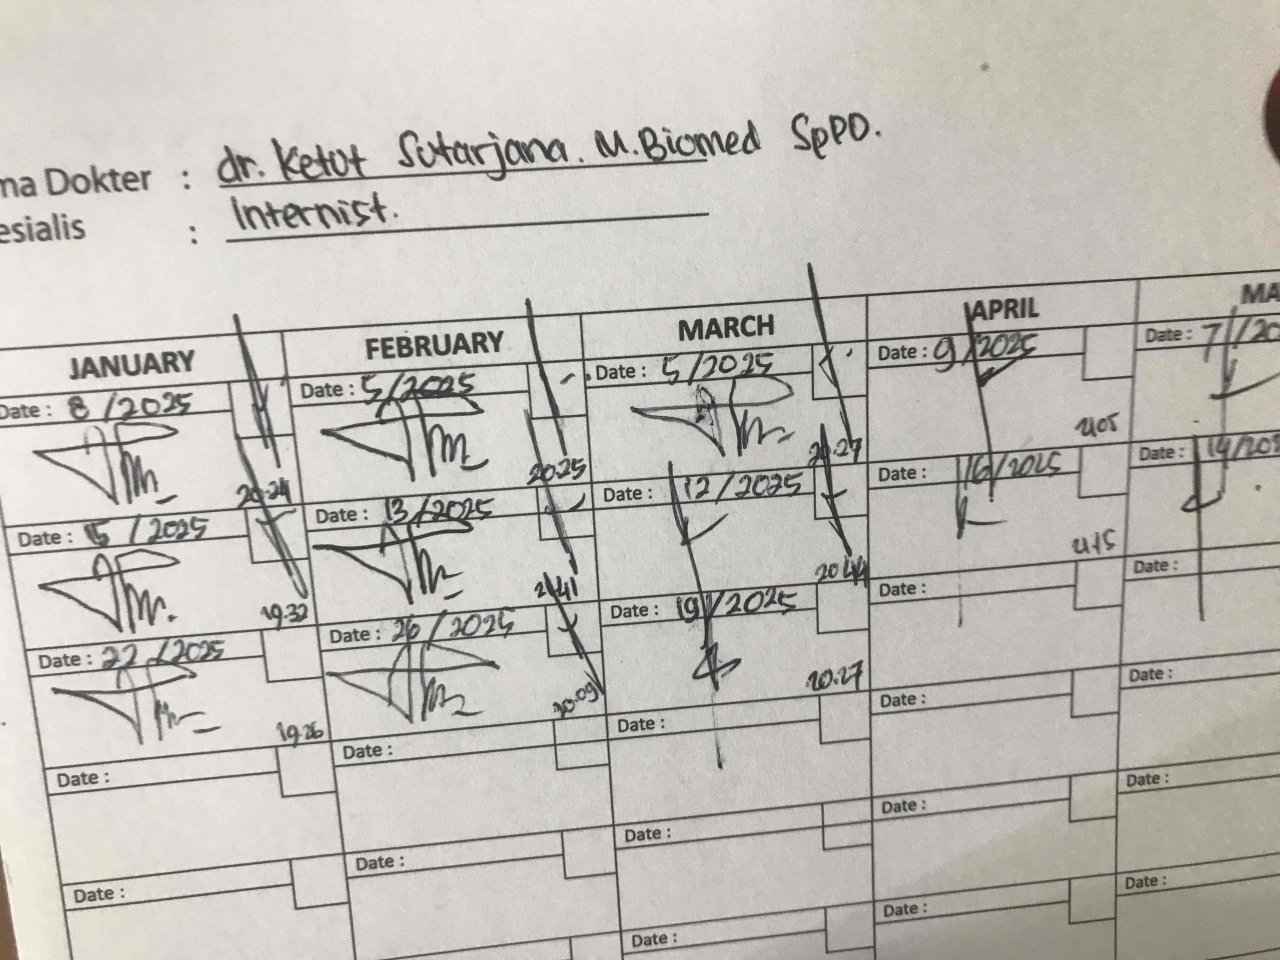 ma Dokter : dr. Ketut Sutarjana. M.Biomed SpPD.
esialis : Internist.
JANUARY FEBRUARY MARCH APRIL MA
Date : 8 /2025 Date : 5/2025 Date : 5/2025 Date : 9/2025 Date : 7/20
20.24 20.25 20.27
Date : 15 /2025 Date : 13/2025 Date : 12/2025 Date : 16/2025 Date : 14/202
19.32 21.41 20.44
Date : 22 /2025 Date : 26/2025 Date : 19/2025 Date : Date :
19.26 20.09 20.27
Date : Date : Date : Date : Date :
Date : Date : Date : Date : Date :
Date : Date : Date :